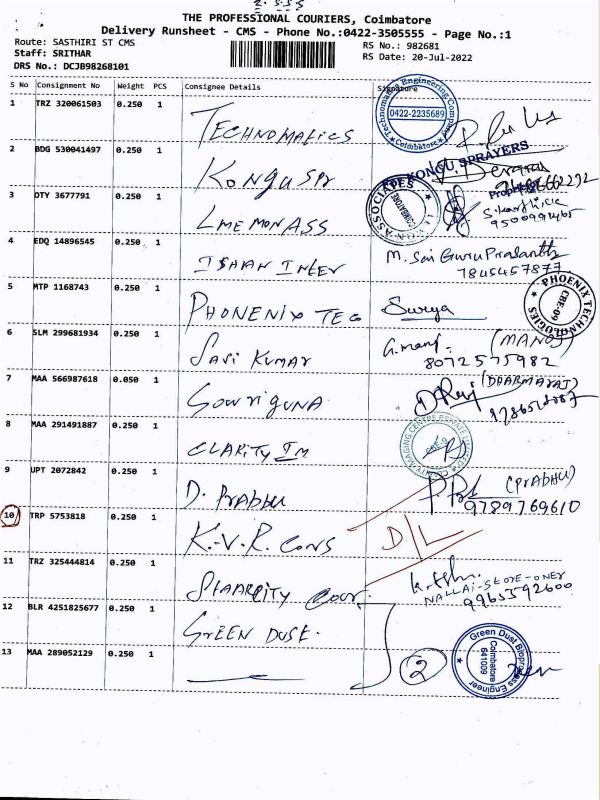 THE PROFESSIONAL COURIERS, Coimbatore
Delivery Runsheet - CMS - Phone No.:0422-3505555 - Page No.:1
Route: SASTHIRI ST CMS
RS No.: 982681
Staff: SRITHAR
RS Date: 20-Jul-2022
DRS No.: DCJB98268101
S No Consignment No Weight PCS Consignee Details Signature
1 TRZ 320061503 0.250 1 TECHNOMATICS
Technomaq Engineering
0422-2235689
Coimbatore
2 BDG 530041497 0.250 1 KONGU SPR
KONGU SPRAYERS
3 DTY 3677791 0.250 1 LMEMON ASS
ASSOCIATES
COIMBATORE
9500991465
4 EDQ 14896545 0.250 1 ISHAN INTER M. Sai Guru Prasanth
7845457877
5 MTP 1168743 0.250 1 PHONENIX TEC Surya
PHOENIX TECHNOLOGIES
CBE-09
6 SLM 299681934 0.250 1 SASI KUMAR (MANOJ)
8072575982
7 MAA 566987618 0.050 1 GOWRIGUNA (DHARMARAJ)
8 MAA 291491887 0.250 1 CLARITY IM
9 UPT 2072842 0.250 1 D. Prabhu (PrABHU)
9789769610
10 TRP 5753818 0.250 1 K.V.R. CONS D/L
11 TRZ 325444814 0.250 1
NALLAI-STORE-ONER
9965592600
12 BLR 4251825677 0.250 1 GREEN DUSE.
13 MAA 289052129 0.250 1 2
Green Dust Bioprocess Engineer
Coimbatore
641009